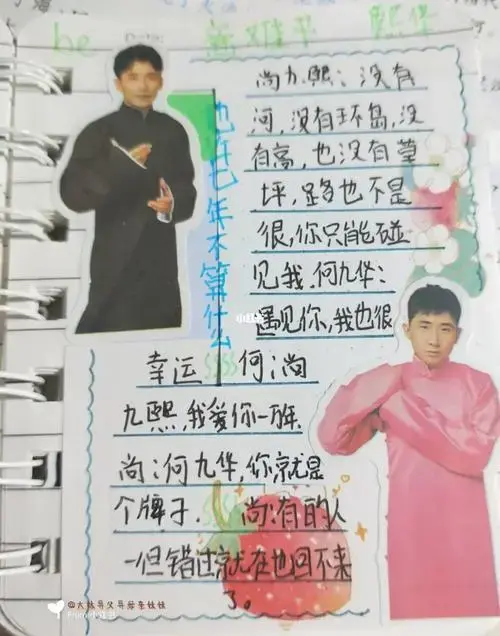 he
尚九熙:没有
河,没有环岛,没
有高,也没有草
坪,路也不是
很,你只能碰
见我.何九华:
遇见你,我也很
幸运 何:尚
九熙,我爱你一万年.
尚:何九华,你就是
个牌子. 尚:有的人
一但错过就在也回不来
了。
也许七年不算什么
小红书